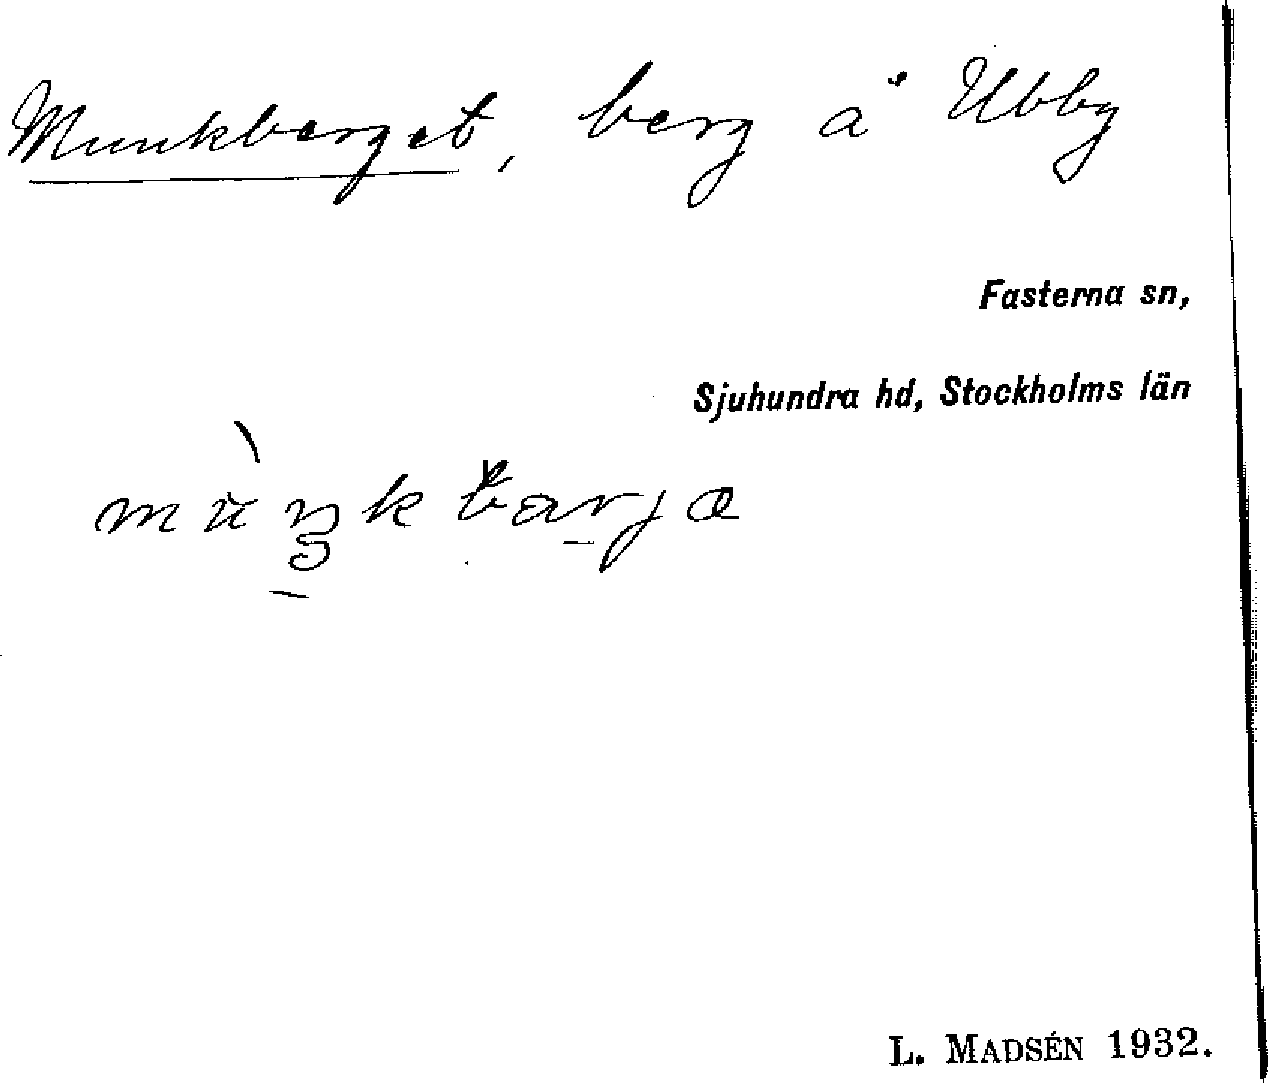 Munkberget, berg å Ubby
Fasterna sn,
Sjuhundra hd, Stockholms län
L. MADSÉN 1932.